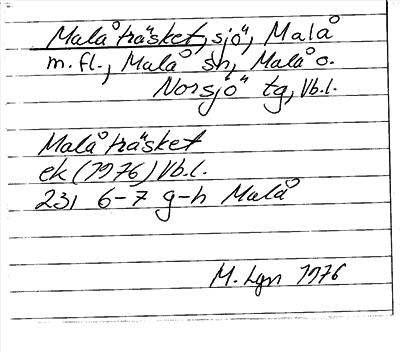 Malåträsket, sjö, Malå
m.fl., Malå sn, Malå o.
Norsjö tg, Vb.l.
Malåträsket
ek (1976) Vb.l.
23I 6-7 g-h Malå
M. Lgn 1976